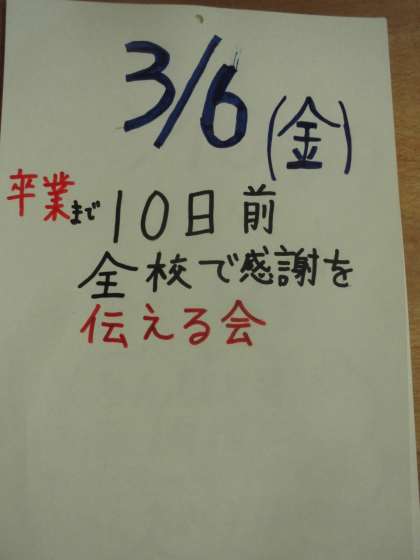 3/6(金)
卒業まで10日前
全校で感謝を
伝える会